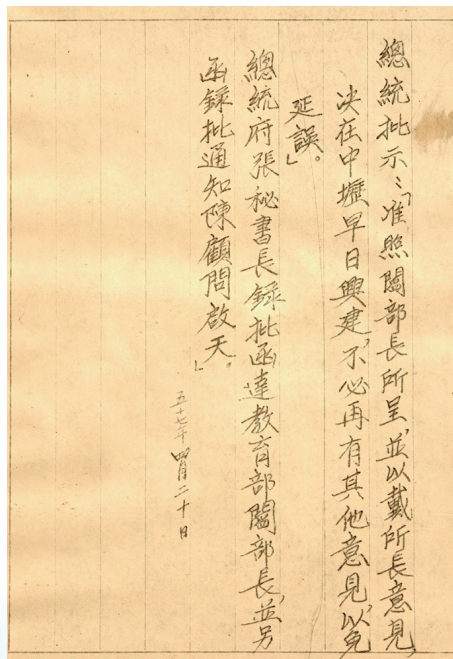 總統批示：「准照閻部長所呈，並以戴所長意見，
決在中壢早日興建，不必再有其他意見，以免
延誤。」
總統府張秘書長錄批函達教育部閻部長，並另
函錄批通知陳顧問啟天。」
五十七年四月二十日